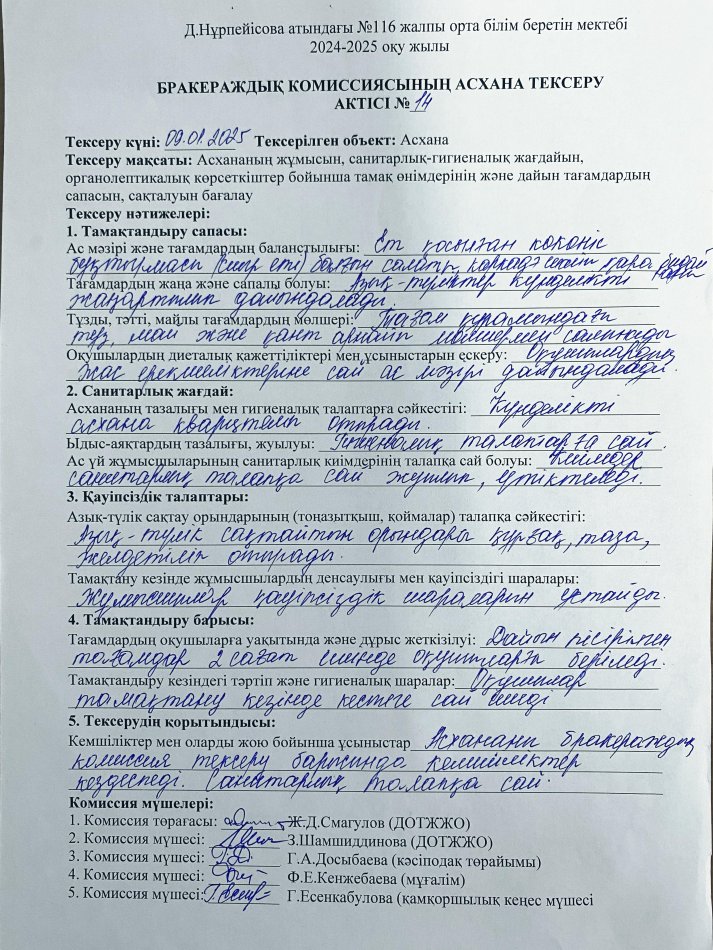 Д.Нұрпейісова атындағы №116 жалпы орта білім беретін мектебі
2024-2025 оқу жылы
БРАКЕРАЖДЫҚ КОМИССИЯСЫНЫҢ АСХАНА ТЕКСЕРУ
АКТІСІ № 14
Тексеру күні: 09.01.2025 Тексерілген объект: Асхана
Тексеру мақсаты: Асхананың жұмысын, санитарлық-гигиеналық жағдайын,
органолептикалық көрсеткіштер бойынша тамақ өнімдерінің және дайын тағамдардың
сапасын, сақталуын бағалау
Тексеру нәтижелері:
1. Тамақтандыру сапасы:
Ас мәзірі және тағамдардың баланстылығы: Ет қосылған көкөніс
бұқтырмасы (сиыр еті) балғын салаты, қара бидай наны
Тағамдардың жаңа және сапалы болуы: Азық-түліктер күнделікті
жаңартылып дайындалады.
Тұзды, тәтті, майлы тағамдардың мөлшері: Тағам құрамындағы
тұз, май және қант арнайы мөлшермен салынады
Оқушылардың диеталық қажеттіліктері мен ұсыныстарын ескеру: Оқушылардың
жас ерекшеліктеріне сай ас мәзірі дайындалады.
2. Санитарлық жағдай:
Асхананың тазалығы мен гигиеналық талаптарға сәйкестігі: Күнделікті
асхана кварцталып отырады.
Ыдыс-аяқтардың тазалығы, жуылуы: Гигиеналық талаптарға сай.
Ас үй жұмысшыларының санитарлық киімдерінің талапқа сай болуы: Киімдер
санитарлық талапқа сай жуылып, үтіктеледі.
3. Қауіпсіздік талаптары:
Азық-түлік сақтау орындарының (тоңазытқыш, қоймалар) талапқа сәйкестігі:
Азық-түлік сақтайтын орындары құрғақ, таза,
желдетіліп отырады.
Тамақтану кезінде жұмысшылардың денсаулығы мен қауіпсіздігі шаралары:
Жұмысшылар қауіпсіздік шараларын ұстайды.
4. Тамақтандыру барысы:
Тағамдардың оқушыларға уақытында және дұрыс жеткізілуі: Дайын пісірілген
тағамдар 2 сағат ішінде оқушыларға беріледі.
Тамақтандыру кезіндегі тәртіп және гигиеналық шаралар: Оқушылар
тамақтану кезінде кестеге сай ішеді
5. Тексерудің қорытындысы:
Кемшіліктер мен оларды жою бойынша ұсыныстар Асхананы бракераждық
комиссия тексеру барысында кемшіліктер
кездеспеді. Санитарлық талапқа сай.
Комиссия мүшелері:
1. Комиссия төрағасы: Ж.Д.Смагулов (ДОТЖЖО)
2. Комиссия мүшесі: З.Шамшиддинова (ДОТЖЖО)
3. Комиссия мүшесі: Г.А.Досыбаева (кәсіподақ төрайымы)
4. Комиссия мүшесі: Ф.Е.Кенжебаева (мұғалім)
5. Комиссия мүшесі: Г.Есенкабулова (қамқоршылық кеңес мүшесі